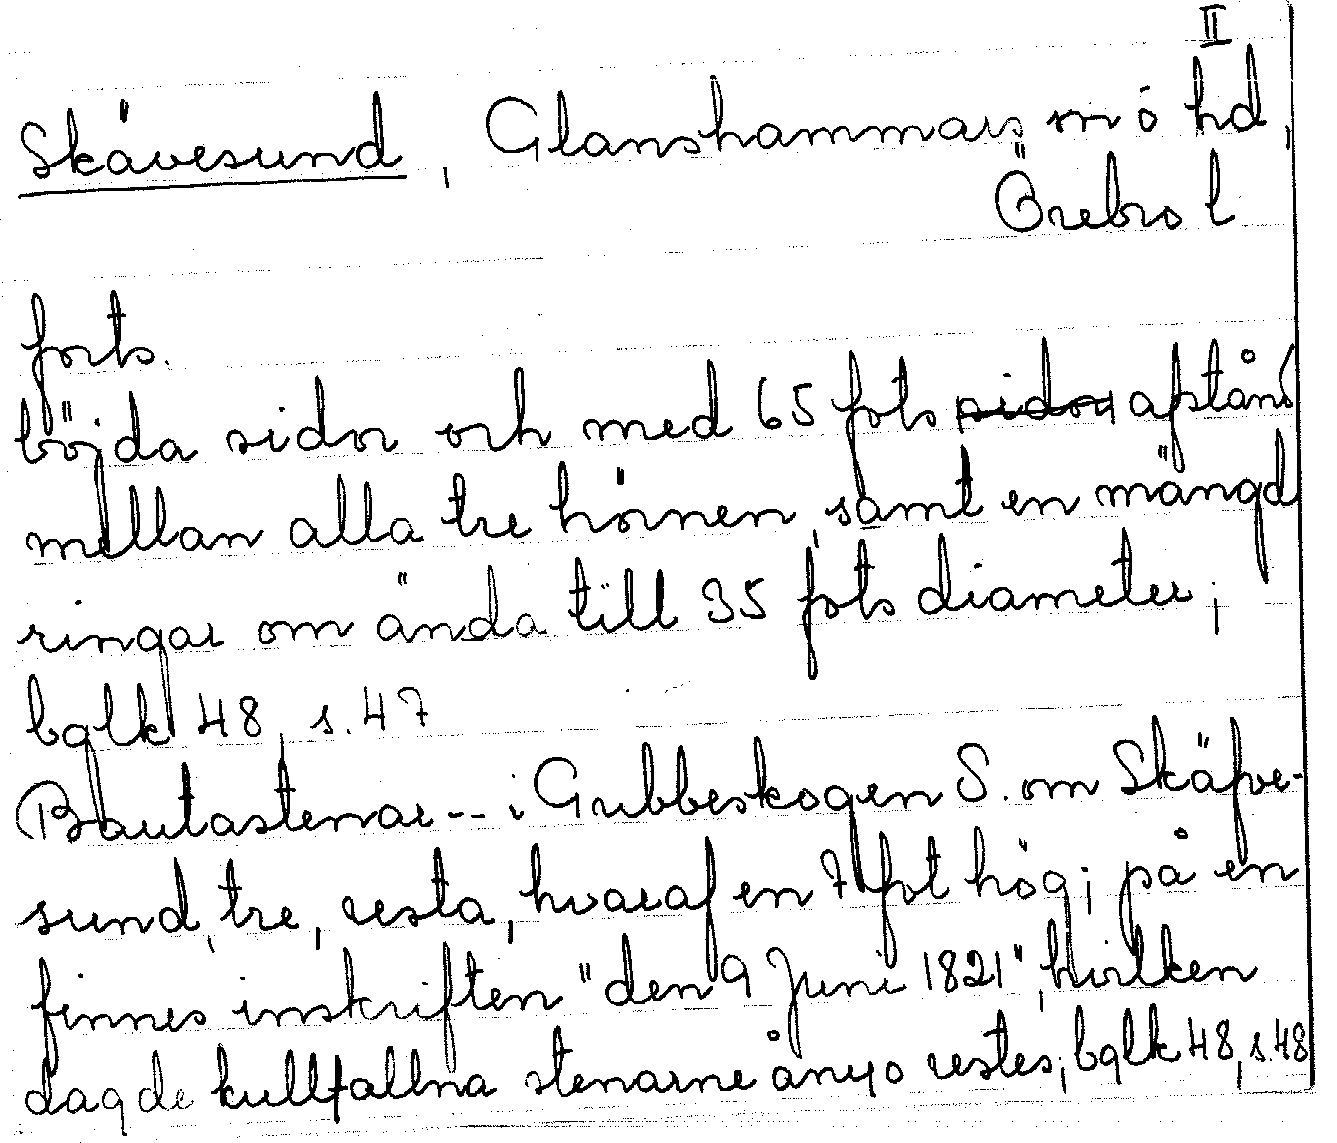 II
Skävesund, Glanshammars sn ö hd,
Örebro l
forts.
böjda sidor och med 65 fots sidor afstånd
mellan alla tre hörnen, samt en mängd
ringar om ända till 35 fots diameter;
bglk 48, s. 47
Bautastenar -- i Gubbeskogen S. om Skäfve-
sund, tre, resta, hvaraf en 7 fot hög; på en
finnes inskriften "den 9 Juni 1821", hvilken
dag de kullfallna stenarne ånyo restes; bglk 48, s. 48